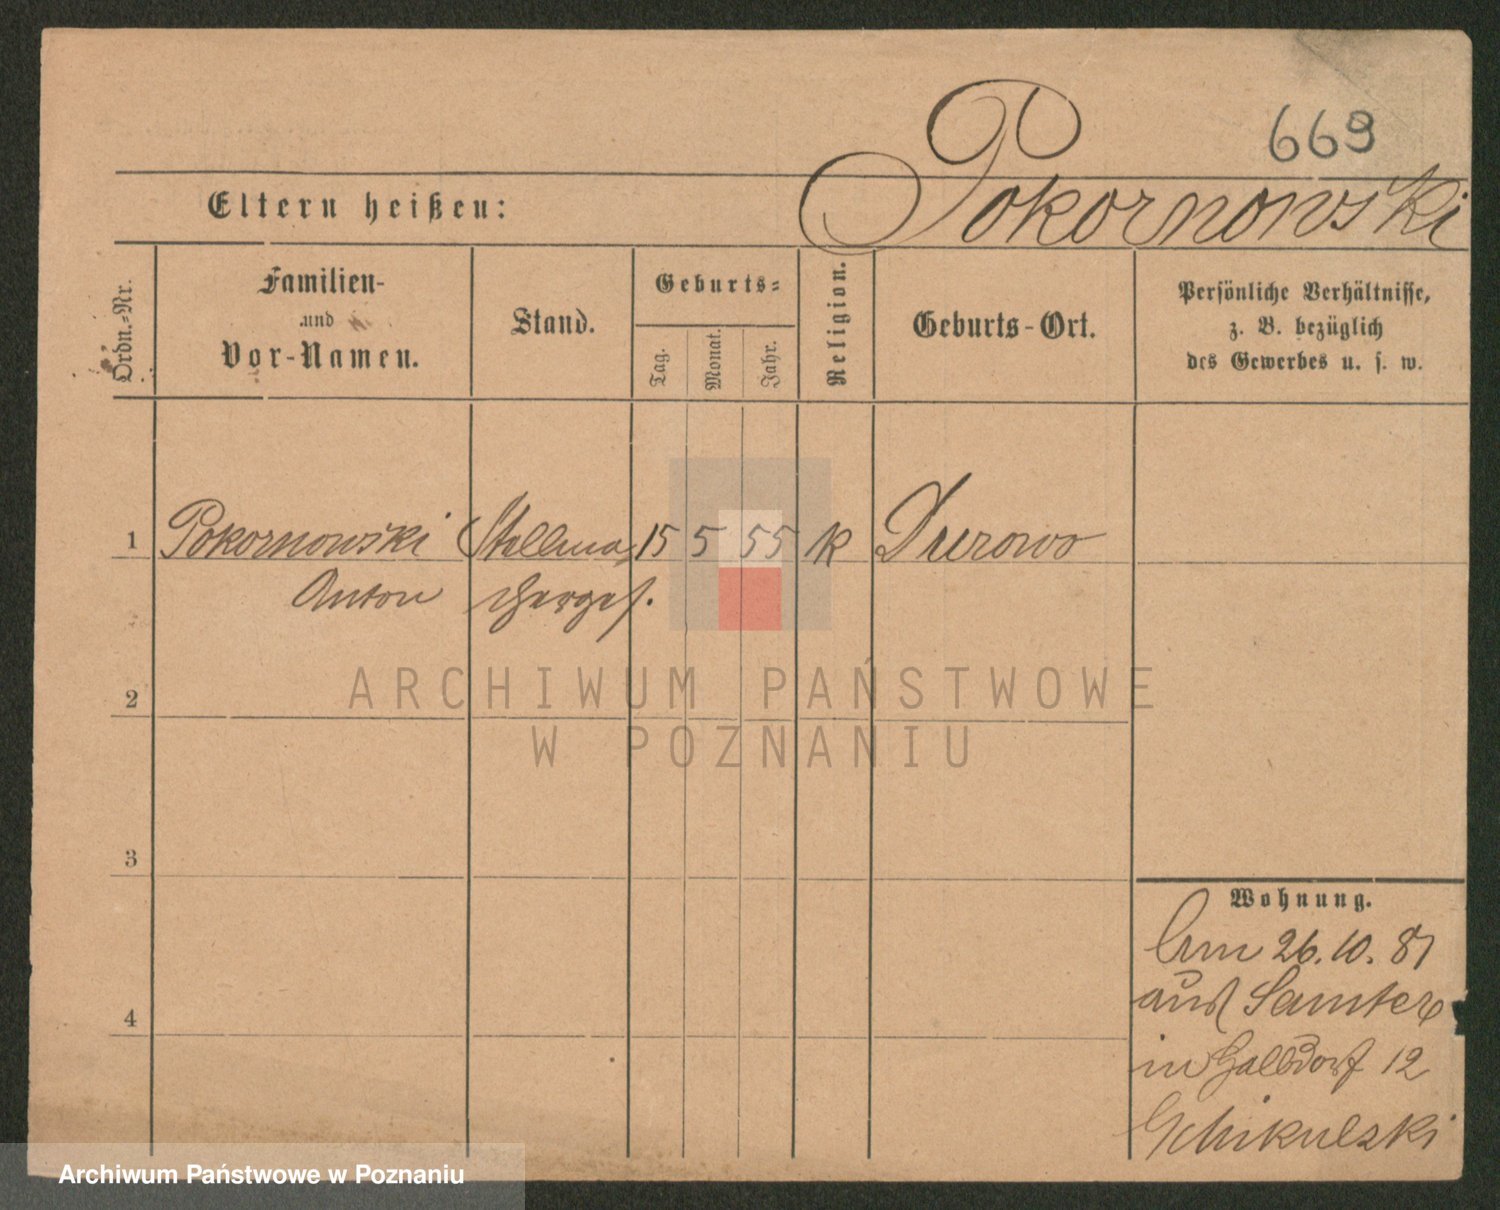 669
Eltern heißen:
Pokornowski
Ordn.-Nr.
Familien-
und
Vor-Namen.
Stand.
Geburts-
Tag.
Monat.
Jahr.
Religion.
Geburts-Ort.
Persönliche Verhältnisse,
z. B. bezüglich
des Gewerbes u. s. w.
1 Pokornowski Stellma= 15 5 55 k Durowo
Anton cherges.
ARCHIWUM PAŃSTWOWE
W POZNANIU
2
3
4
Wohnung.
Am 26.10.81
aus Samter
in 12
Archiwum Państwowe w Poznaniu